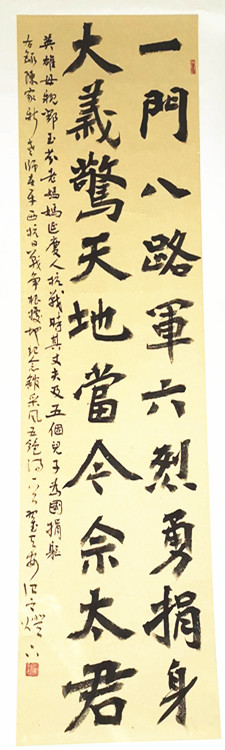 一門八路軍六烈勇捐身
大義驚天地當今佘太君
英雄母親鄧玉芬老媽媽密雲人抗戰時其丈夫及五個兒子為國捐軀
右錄陳家新老師在平西抗日戰爭根據地紀念館采風五絕詩一首